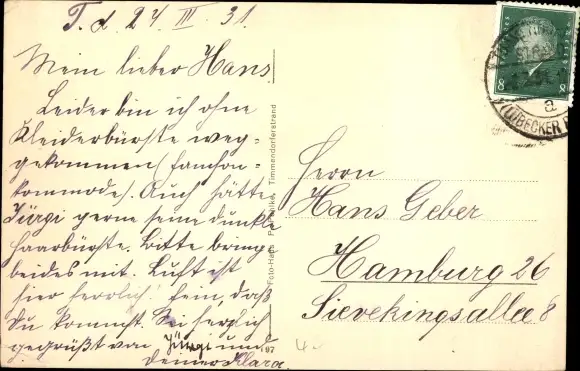 T. d. 24 III. 31.
Mein lieber Hans
Leider bin ich ohne
Kleiderbürste weg-
gekommen
kommode). Auch hätte
Jürgi gerne seine dunkle
Haarbürste. Bitte bringe
beides mit. Luft ist
hier herrlich! fein, daß
du kommst. Sei herzlich
gegrüßt von Jürgi und
deiner Klara.
Timmendorferstrand
197
8 8
a
(LÜBECKER
Herrn
Hans Geber
Hamburg 26
Sievekingsallee 8